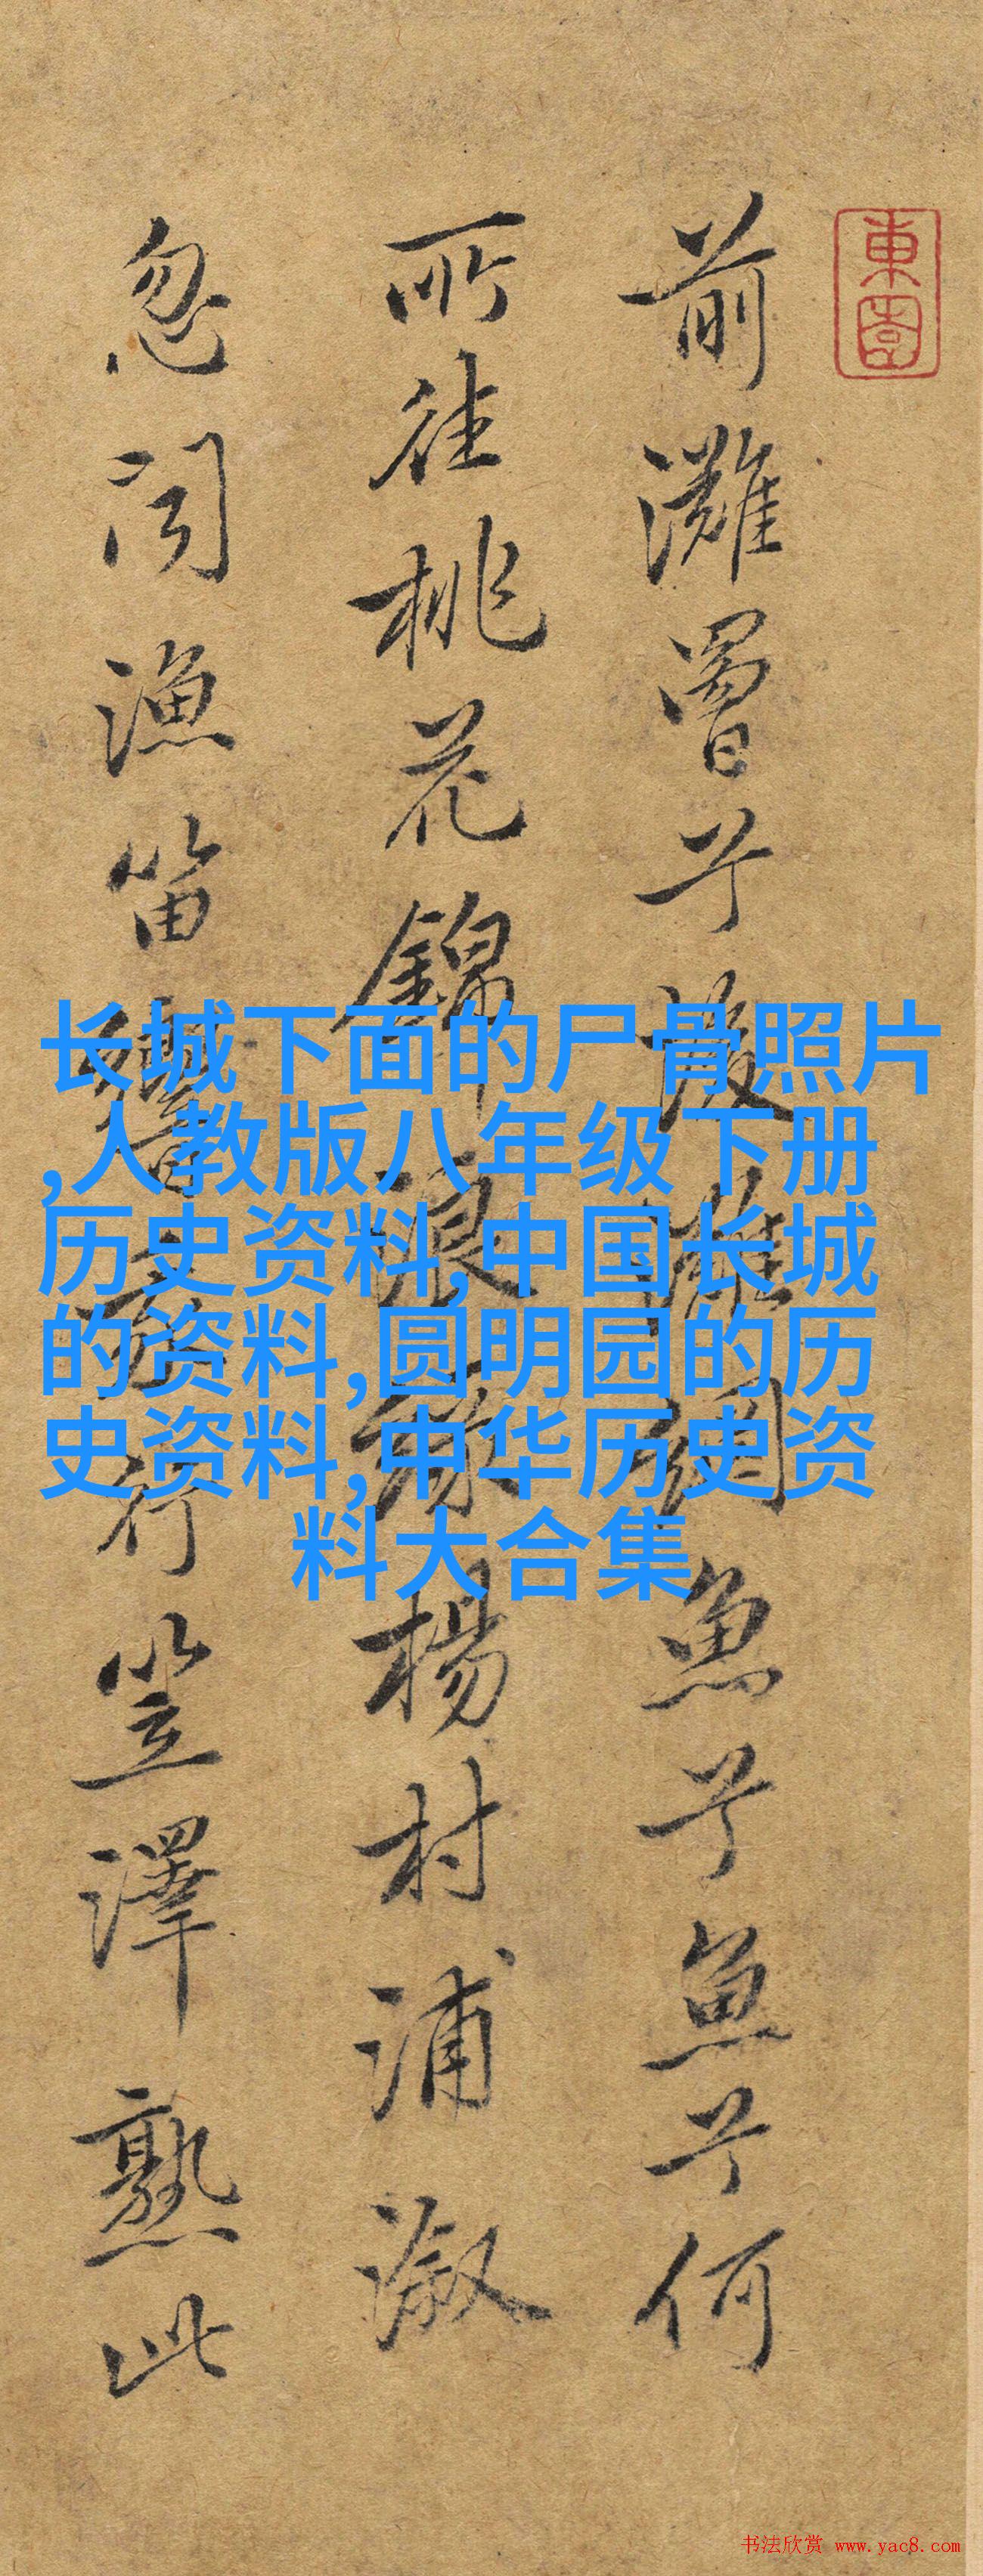 東園
前灘罾兮後灘網魚兮魚兮何
所往桃花錦浪綠楊村浦溆
忽闻漁笛響行笠澤熟此
长城下面的尸骨照片
,人教版八年级下册
历史资料,中国长城
的资料,圆明园的历
史资料,中华历史资
料大合集
书法欣赏 www.yac8.com